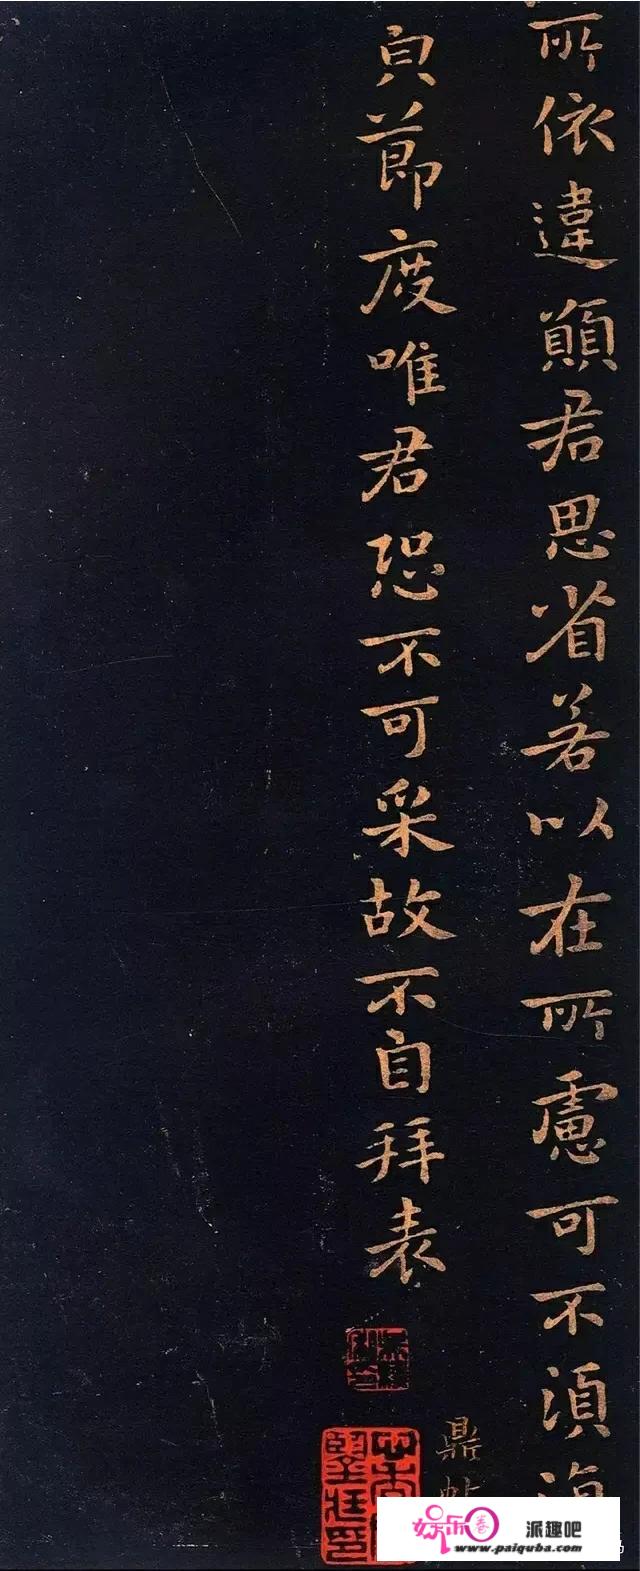 所依違願君思省若以在所慮可不須復
節度唯君恐不可采故不自拜表
鼎帖
娱乐圈
派趣吧
www.paiquba.com